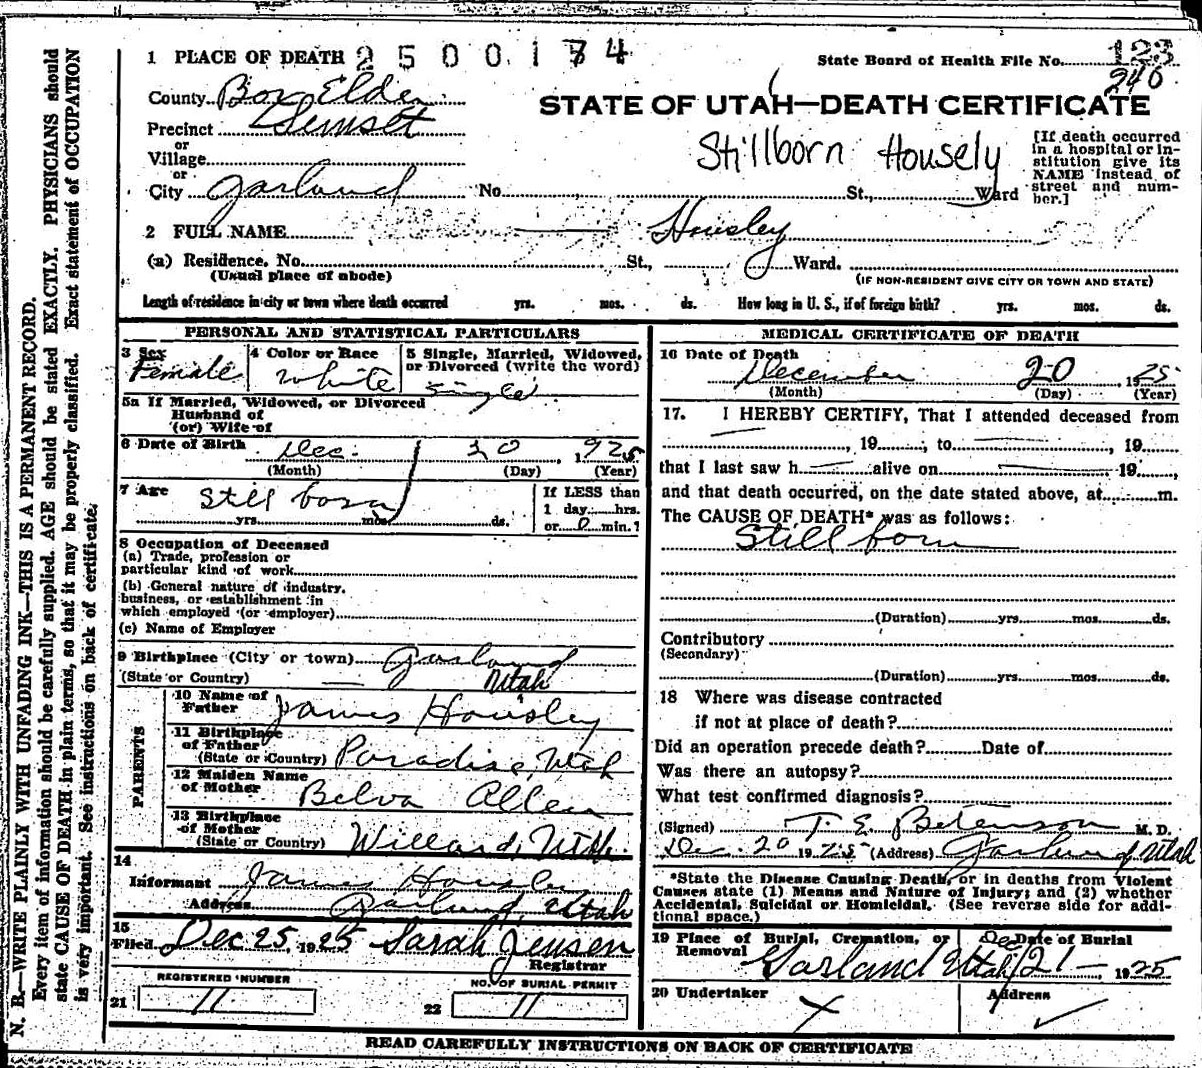 1 PLACE OF DEATH 2500174
State Board of Health File No. 123
240
County Box Elder
STATE OF UTAH—DEATH CERTIFICATE
Precinct Sunset
or
Village
or
City Garland No. St., Ward
Stillborn Housely
[If death occurred in a hospital or institution give its NAME instead of street and number.]
2 FULL NAME Housley
(a) Residence. No. St., Ward.
(Usual place of abode)
(IF NON-RESIDENT GIVE CITY OR TOWN AND STATE)
Length of residence in city or town where death occurred yrs. mos. ds. How long in U. S., if of foreign birth? yrs. mos. ds.
PERSONAL AND STATISTICAL PARTICULARS
3 Sex Female
4 Color or Race White
5 Single, Married, Widowed, or Divorced (write the word) Single
5a If Married, Widowed, or Divorced
Husband of
(or) Wife of
6 Date of Birth Dec. 20, 1925
(Month) (Day) (Year)
7 Age Still born
yrs. mos. ds.
If LESS than
1 day hrs.
or 0 min.?
8 Occupation of Deceased
(a) Trade, profession or
particular kind of work
(b) General nature of industry,
business, or establishment in
which employed (or employer)
(c) Name of Employer
9 Birthplace (City or town) Garland
(State or Country) Utah
PARENTS
10 Name of Father James Housley
11 Birthplace of Father (State or Country) Paradise, Utah
12 Maiden Name of Mother Belva Allen
13 Birthplace of Mother (State or Country) Willard, Utah.
14
Informant James Housley
Address Garland, Utah
15
Filed Dec 25, 1925 Sarah Jensen
Registrar
REGISTERED NUMBER
21 11
NO. OF BURIAL PERMIT
22 11
MEDICAL CERTIFICATE OF DEATH
16 Date of Death
December 20, 1925
(Month) (Day) (Year)
17. I HEREBY CERTIFY, That I attended deceased from
, 19 ; to , 19
that I last saw h alive on 19 ,
and that death occurred, on the date stated above, at m.
The CAUSE OF DEATH* was as follows:
Still born
(Duration) yrs. mos. ds.
Contributory
(Secondary)
(Duration) yrs. mos. ds.
18 Where was disease contracted
if not at place of death?
Did an operation precede death? Date of
Was there an autopsy?
What test confirmed diagnosis?
(Signed) T. E. Betenson M. D.
Dec. 20 1925 (Address) Garland Utah
*State the Disease Causing Death, or in deaths from Violent
Causes state (1) Means and Nature of Injury; and (2) whether
Accidental, Suicidal or Homicidal. (See reverse side for addi-
tional space.)
19 Place of Burial, Cremation, or Removal Garland Utah
Date of Burial Dec 21 - 1925
20 Undertaker X
Address ✓
READ CAREFULLY INSTRUCTIONS ON BACK OF CERTIFICATE
N. B.—WRITE PLAINLY WITH UNFADING INK—THIS IS A PERMANENT RECORD.
Every item of information should be carefully supplied. AGE should be stated EXACTLY. PHYSICIANS should
state CAUSE OF DEATH in plain terms, so that it may be properly classified. Exact statement of OCCUPATION
is very important. See instructions on back of certificate.